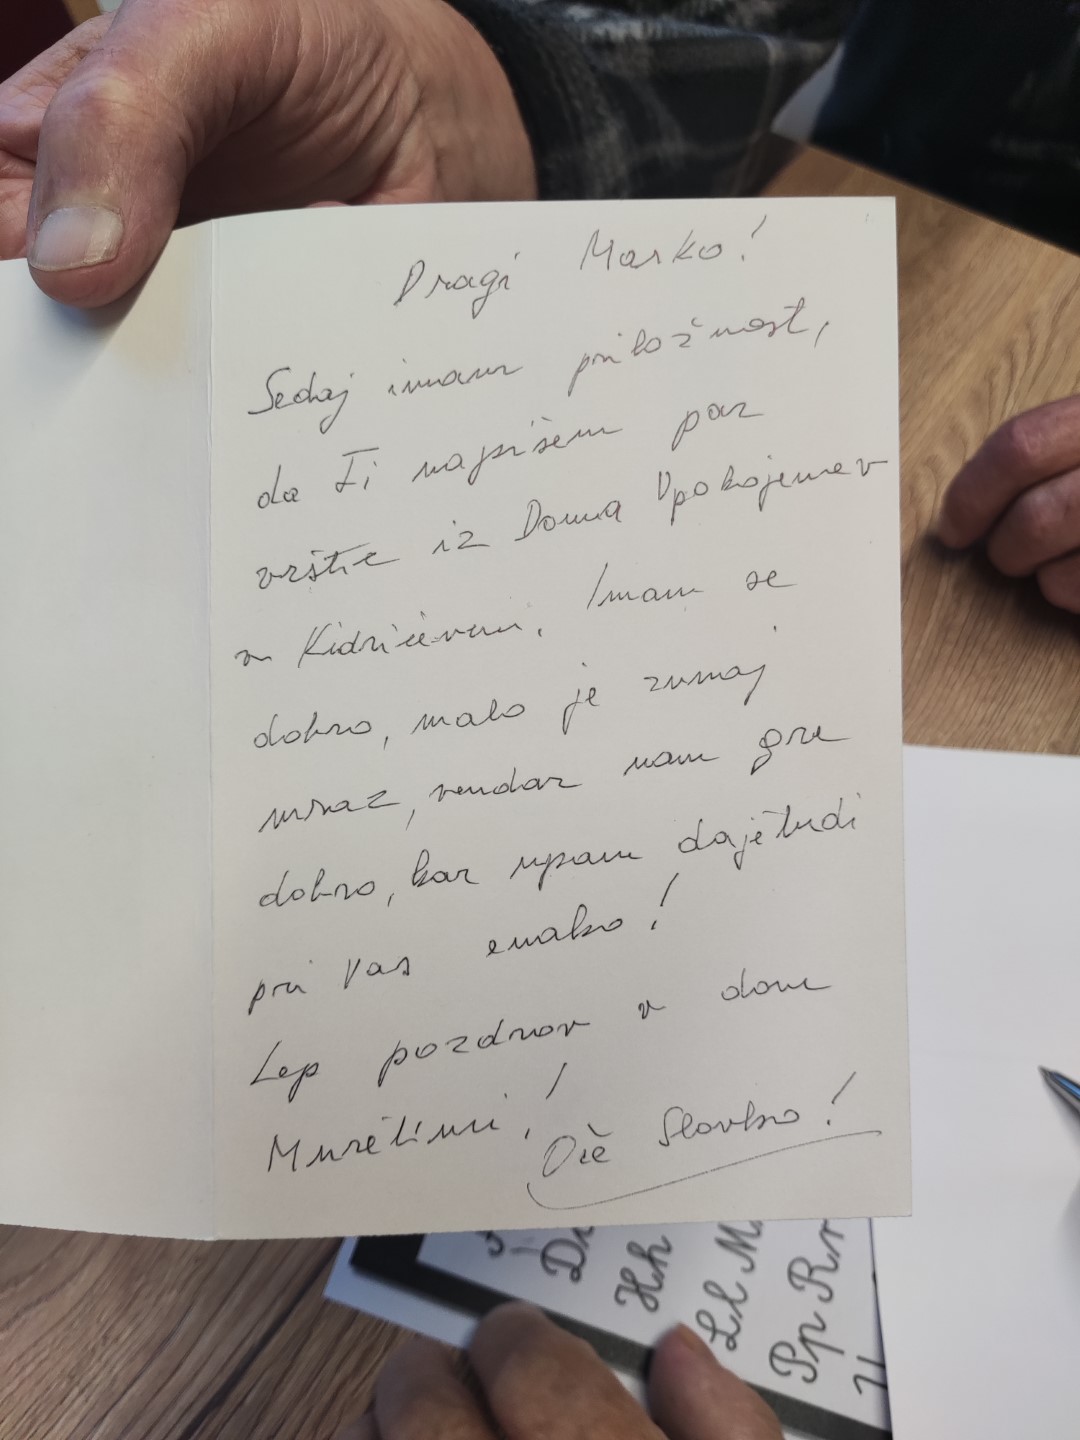 Dragi Marko!
Sedaj imam priložnost,
da Ti napišem par
vrstic iz Doma Upokojencev
v Kidričevem. Imam se
dobro, malo je zunaj
mraz, vendar nam gre
dobro, kar upam daje tudi
pri Vas enako!
Lep pozdrav v dom
Muretinci!
Oče Slavko!
Hh
Ll M
Pp Rr